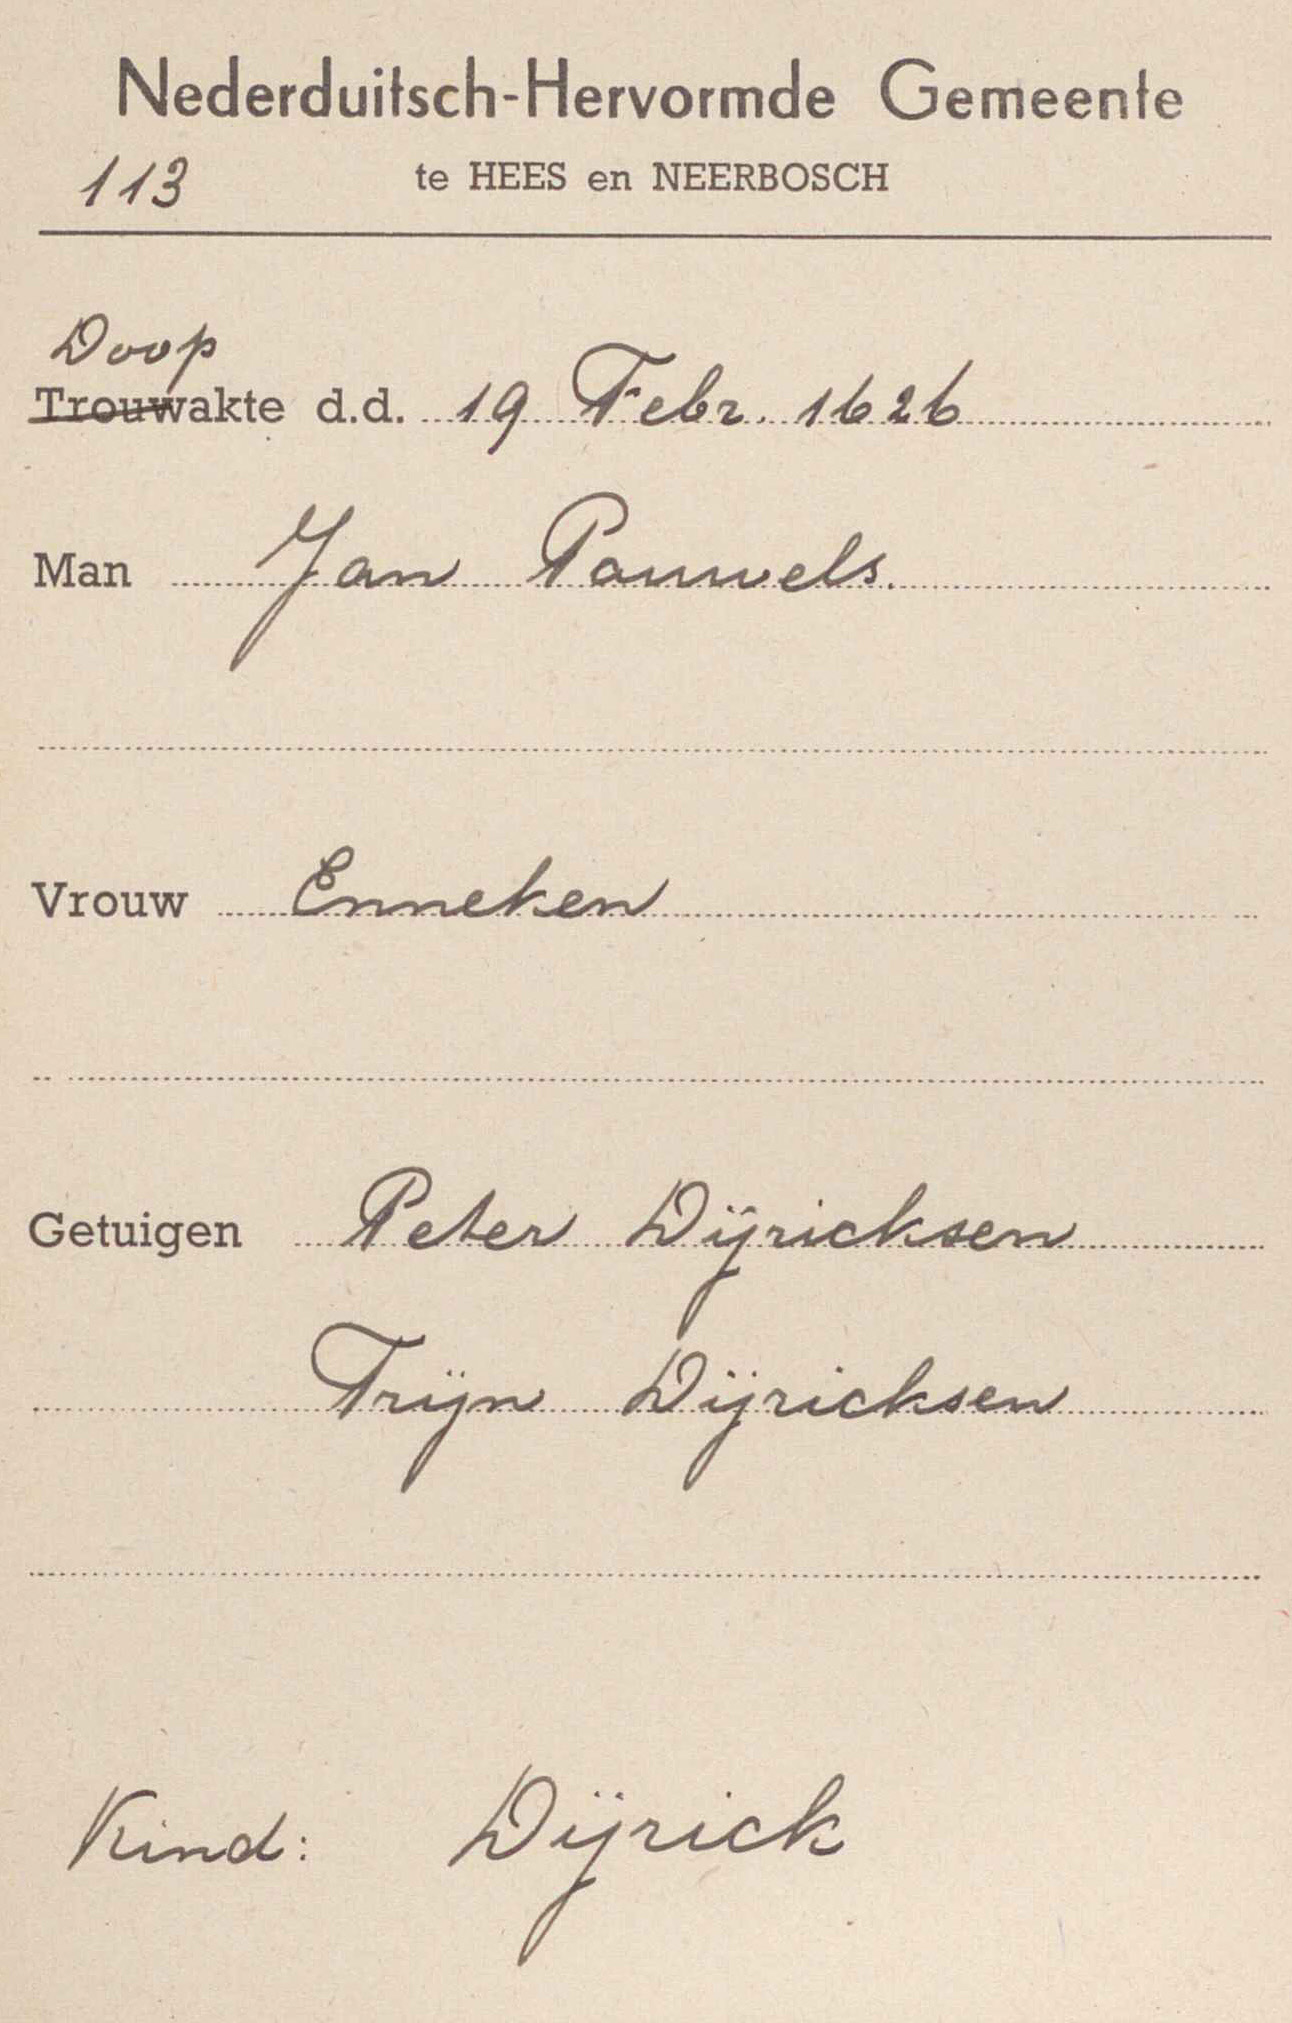 Nederduitsch-Hervormde Gemeente
113 te HEES en NEERBOSCH
Doop
Trouwakte d.d. 19 Febr. 1626
Man Jan Pouwels.
Vrouw Enneken
Getuigen Peter Dijricksen
Trijn Dijricksen
Kind: Dijrick